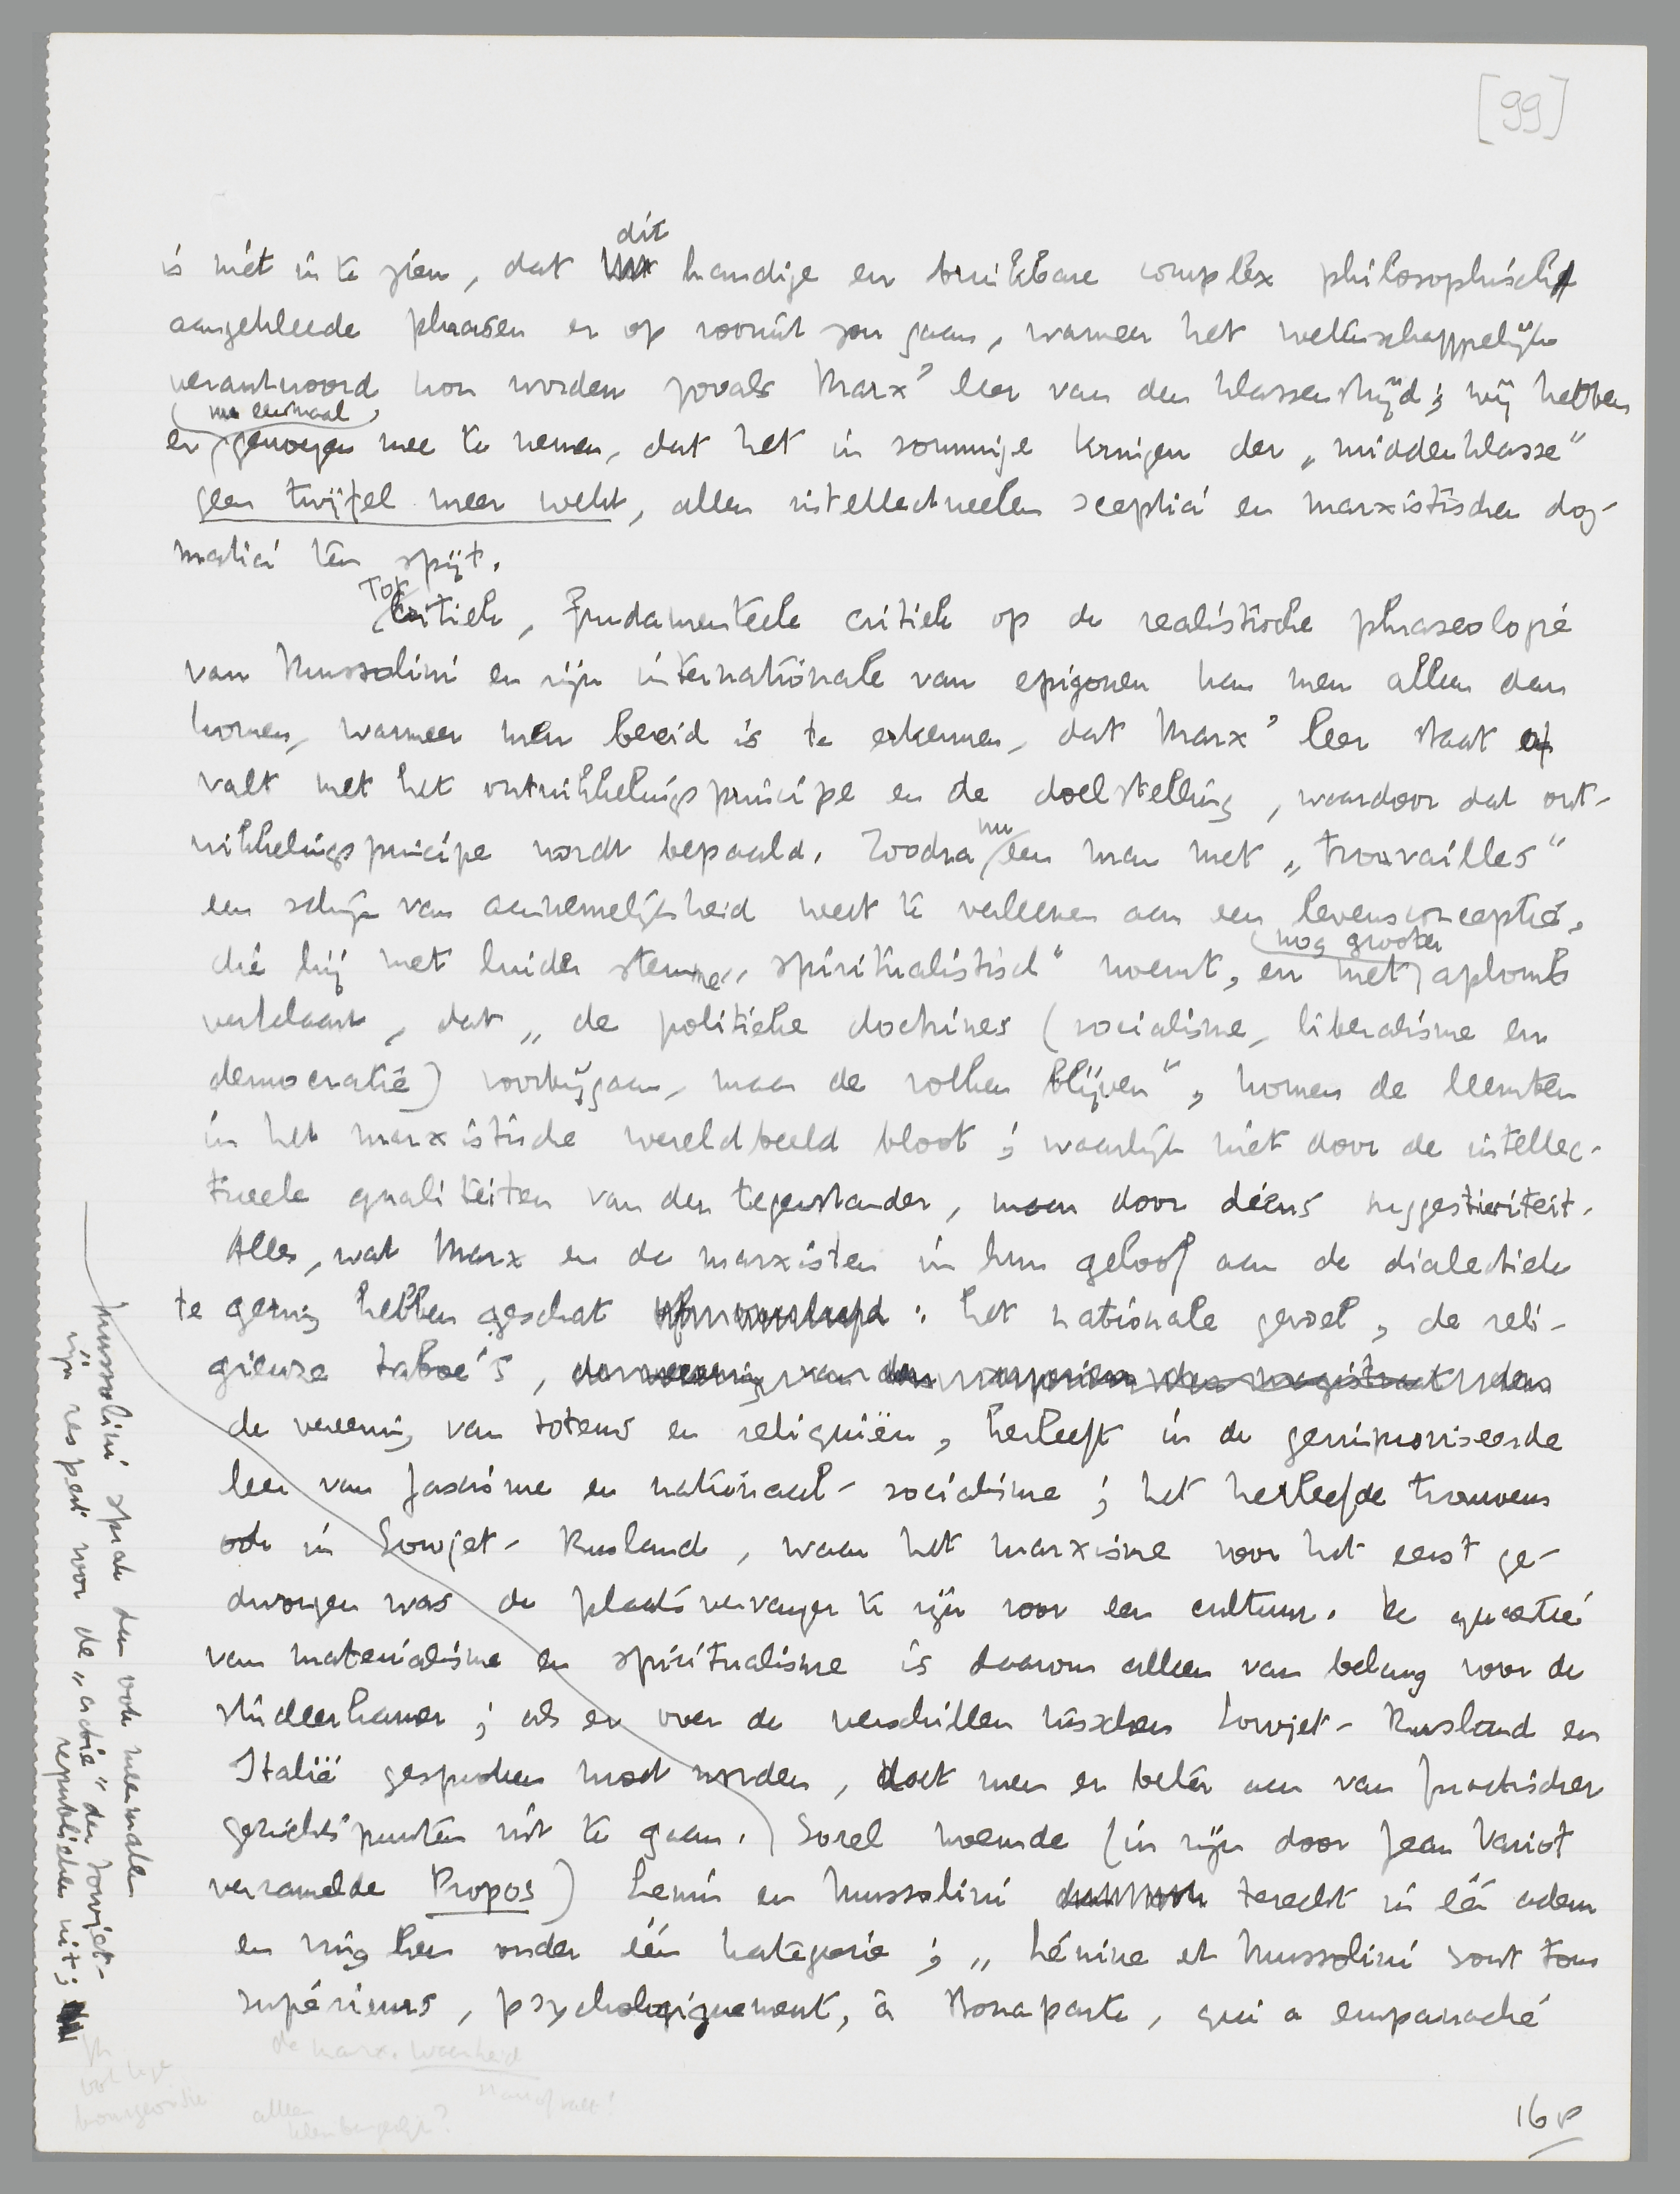 [99]
dit
is niet in te zien, dat handige en bruikbare complex philosophisch
aangekleede phrasen er op vooruit zou gaan, wanneer het wetenschappelijk
verantwoord kon worden zooals Marx' leer van den klassenstrijd; wij hebben
nu eenmaal
er genoegen mee te nemen, dat het in sommige kringen der „middenklasse"
geen twijfel meer wekt, allen intellectueelen sceptici en marxistischen dog-
matici ten spijt.
Tot
critiek, fundamenteele critiek op de realistische phraseologie
van Mussolini en zijn internationale van epigonen kan men alleen dan
komen, wanneer men bereid is te erkennen, dat Marx' leer staat of
valt met het ontwikkelingsprincipe en de doelstelling, waardoor dat ont-
wikkelingsprincipe wordt bepaald. Zoodra een man met „trouvailles"
nu
een schijn van aannemelijkheid weet te verleenen aan een levensconceptie,
die hij met luider stemme „spiritualistisch" noemt, en met aplomb
nog grooter
verklaart, dat „de politieke doctrines (socialisme, liberalisme en
democratie) voorbijgaan, maar de volken blijven", komen de leemten
in het marxistische wereldbeeld bloot; waarlijk niet door de intellec-
tueele qualiteiten van den tegenstander, maar door diens suggestiviteit.
Alles, wat Marx en de marxisten in hun geloof aan de dialectiek
te gering hebben geschat : het nationale gevoel, de reli-
gieuze taboe's,
de vereering van totems en reliquiën, herleeft in de geïmproviseerde
leer van fascisme en nationaal-socialisme; het herleefde trouwens
ook in Sowjet-Rusland, waar het marxisme voor het eerst ge-
dwongen was de plaatsvervanger te zijn voor een cultuur. De quaestie
van materialisme en spiritualisme is daarom alleen van belang voor de
studeerkamer; als er over de verschillen tusschen Sowjet-Rusland en
Italië gesproken moet worden, doet men er beter aan van practischer
gezichtspunten uit te gaan. Sorel noemde (in zijn door Jean Variot
verzamelde Propos) Lenin en Mussolini terecht in één adem
en ving hen onder één kategorie; „Lénine et Mussolini sont tous
supérieurs, psychologiquement, à Bonaparte, qui a empanaché
Mussolini sprak dan ook meermalen
zijn respect voor de „actie" der Sowjet-
republieken uit;
de marx. waarheid
staat of valt!
bourgeoisie
alleen
kleinburgerlijk?
16 v